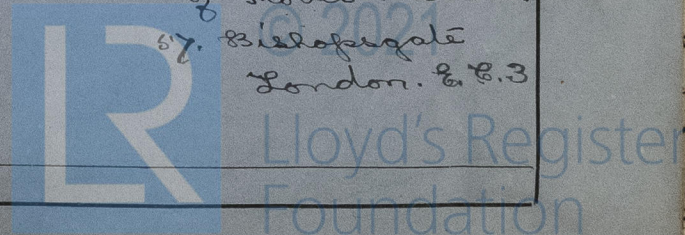 © 2021
57. Bishopsgate
London. E.C.3
LR
Lloyd's Register
Foundation